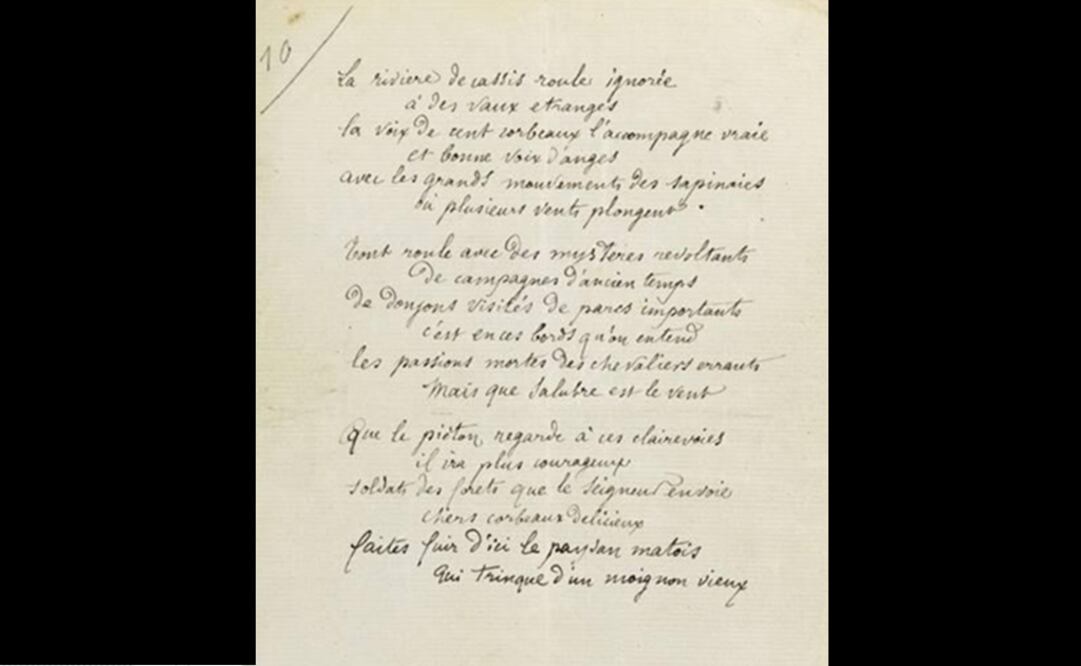 10
La riviere de cassis roule ignorée
à des vaux etranges
la voix de cent corbeaux l'accompagne vraie
et bonne voix d'anges
avec les grands mouvements des sapinaies
où plusieurs vents plongent.
Tout roule avec des mystères revoltants
De campagnes d'ancien temps
De donjons visités de parcs importants
c'est en ces bords qu'on entend
les passions mortes des chevaliers errants
Mais que salubre est le vent
Que le piéton regarde à ces clairevoies
il ira plus courageux
soldats des forets que le Seigneur envoie
chers corbeaux delicieux
faites fuir d'ici le paysan matois
qui trinque d'un moignon vieux